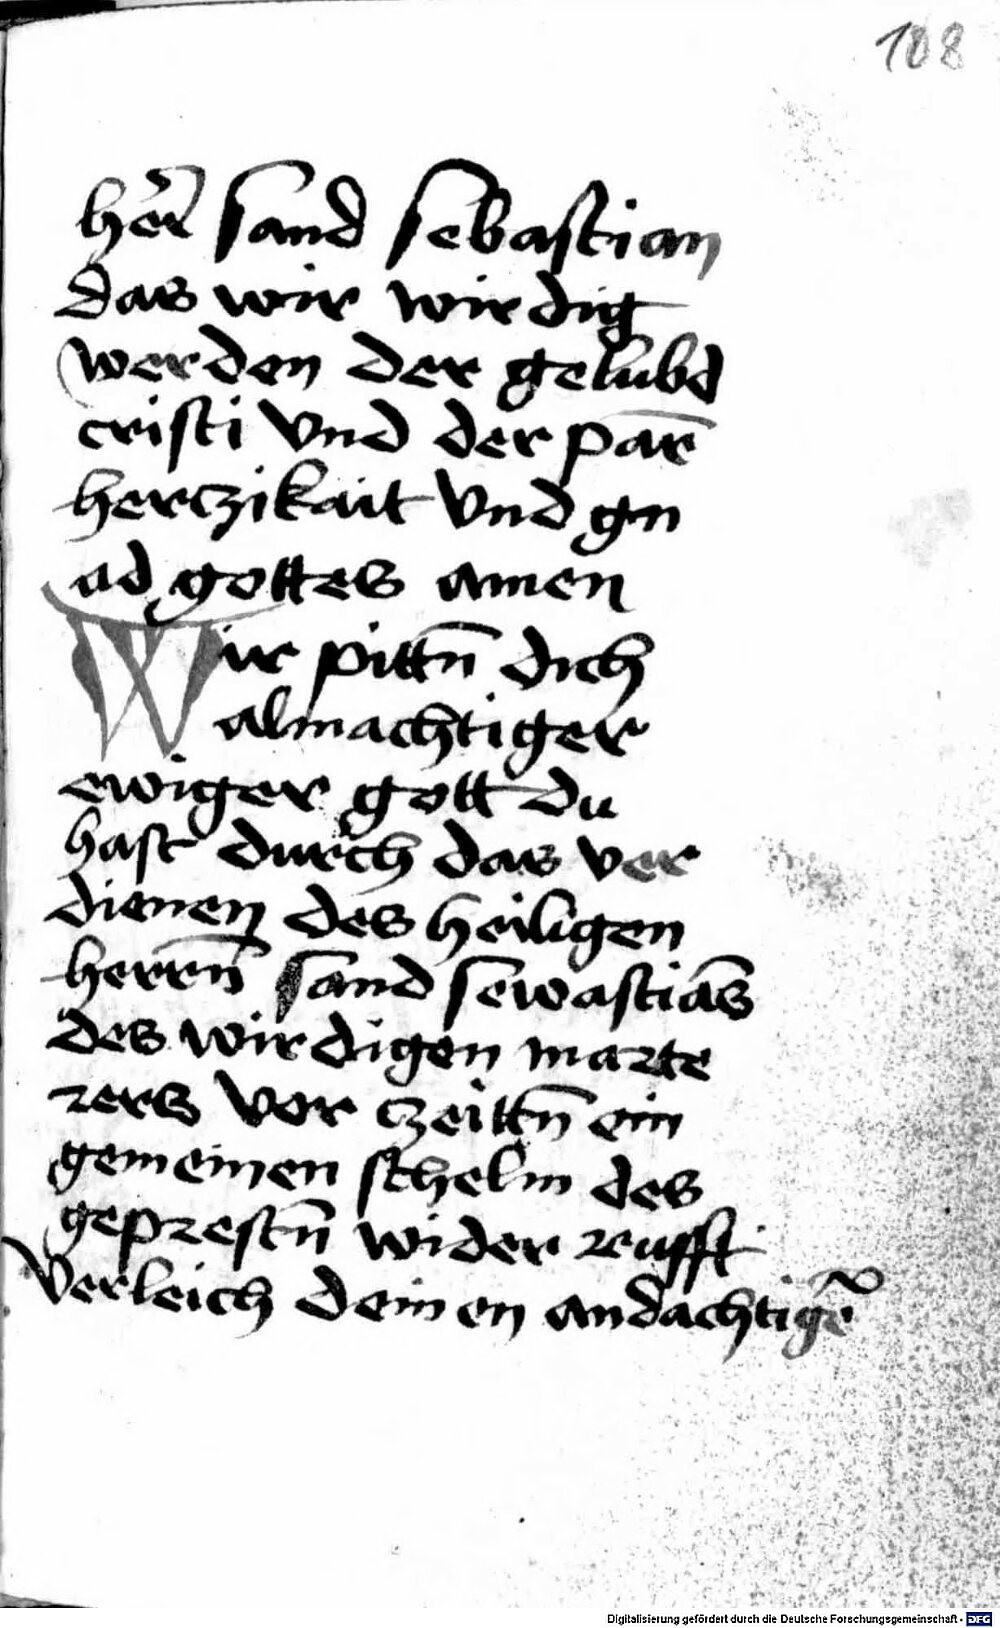 108
her̄ sand sebastian
das wir wirdig
werden der gelubd
cristi vnd der par̄
herczikait vnd gn
ad gottes amen
Wir pittn̄ dich
almachtiger
ewiger gott du
hast durch das ver
dienen des heiligen
herrn̄ sand sewastiās
des wirdigen marte
rers vor czeittn̄ ein
gemeinen schelm des
geprestn̄ wider reufft
verleich deinen andachtigē
Digitalisierung gefördert durch die Deutsche Forschungsgemeinschaft - DFG